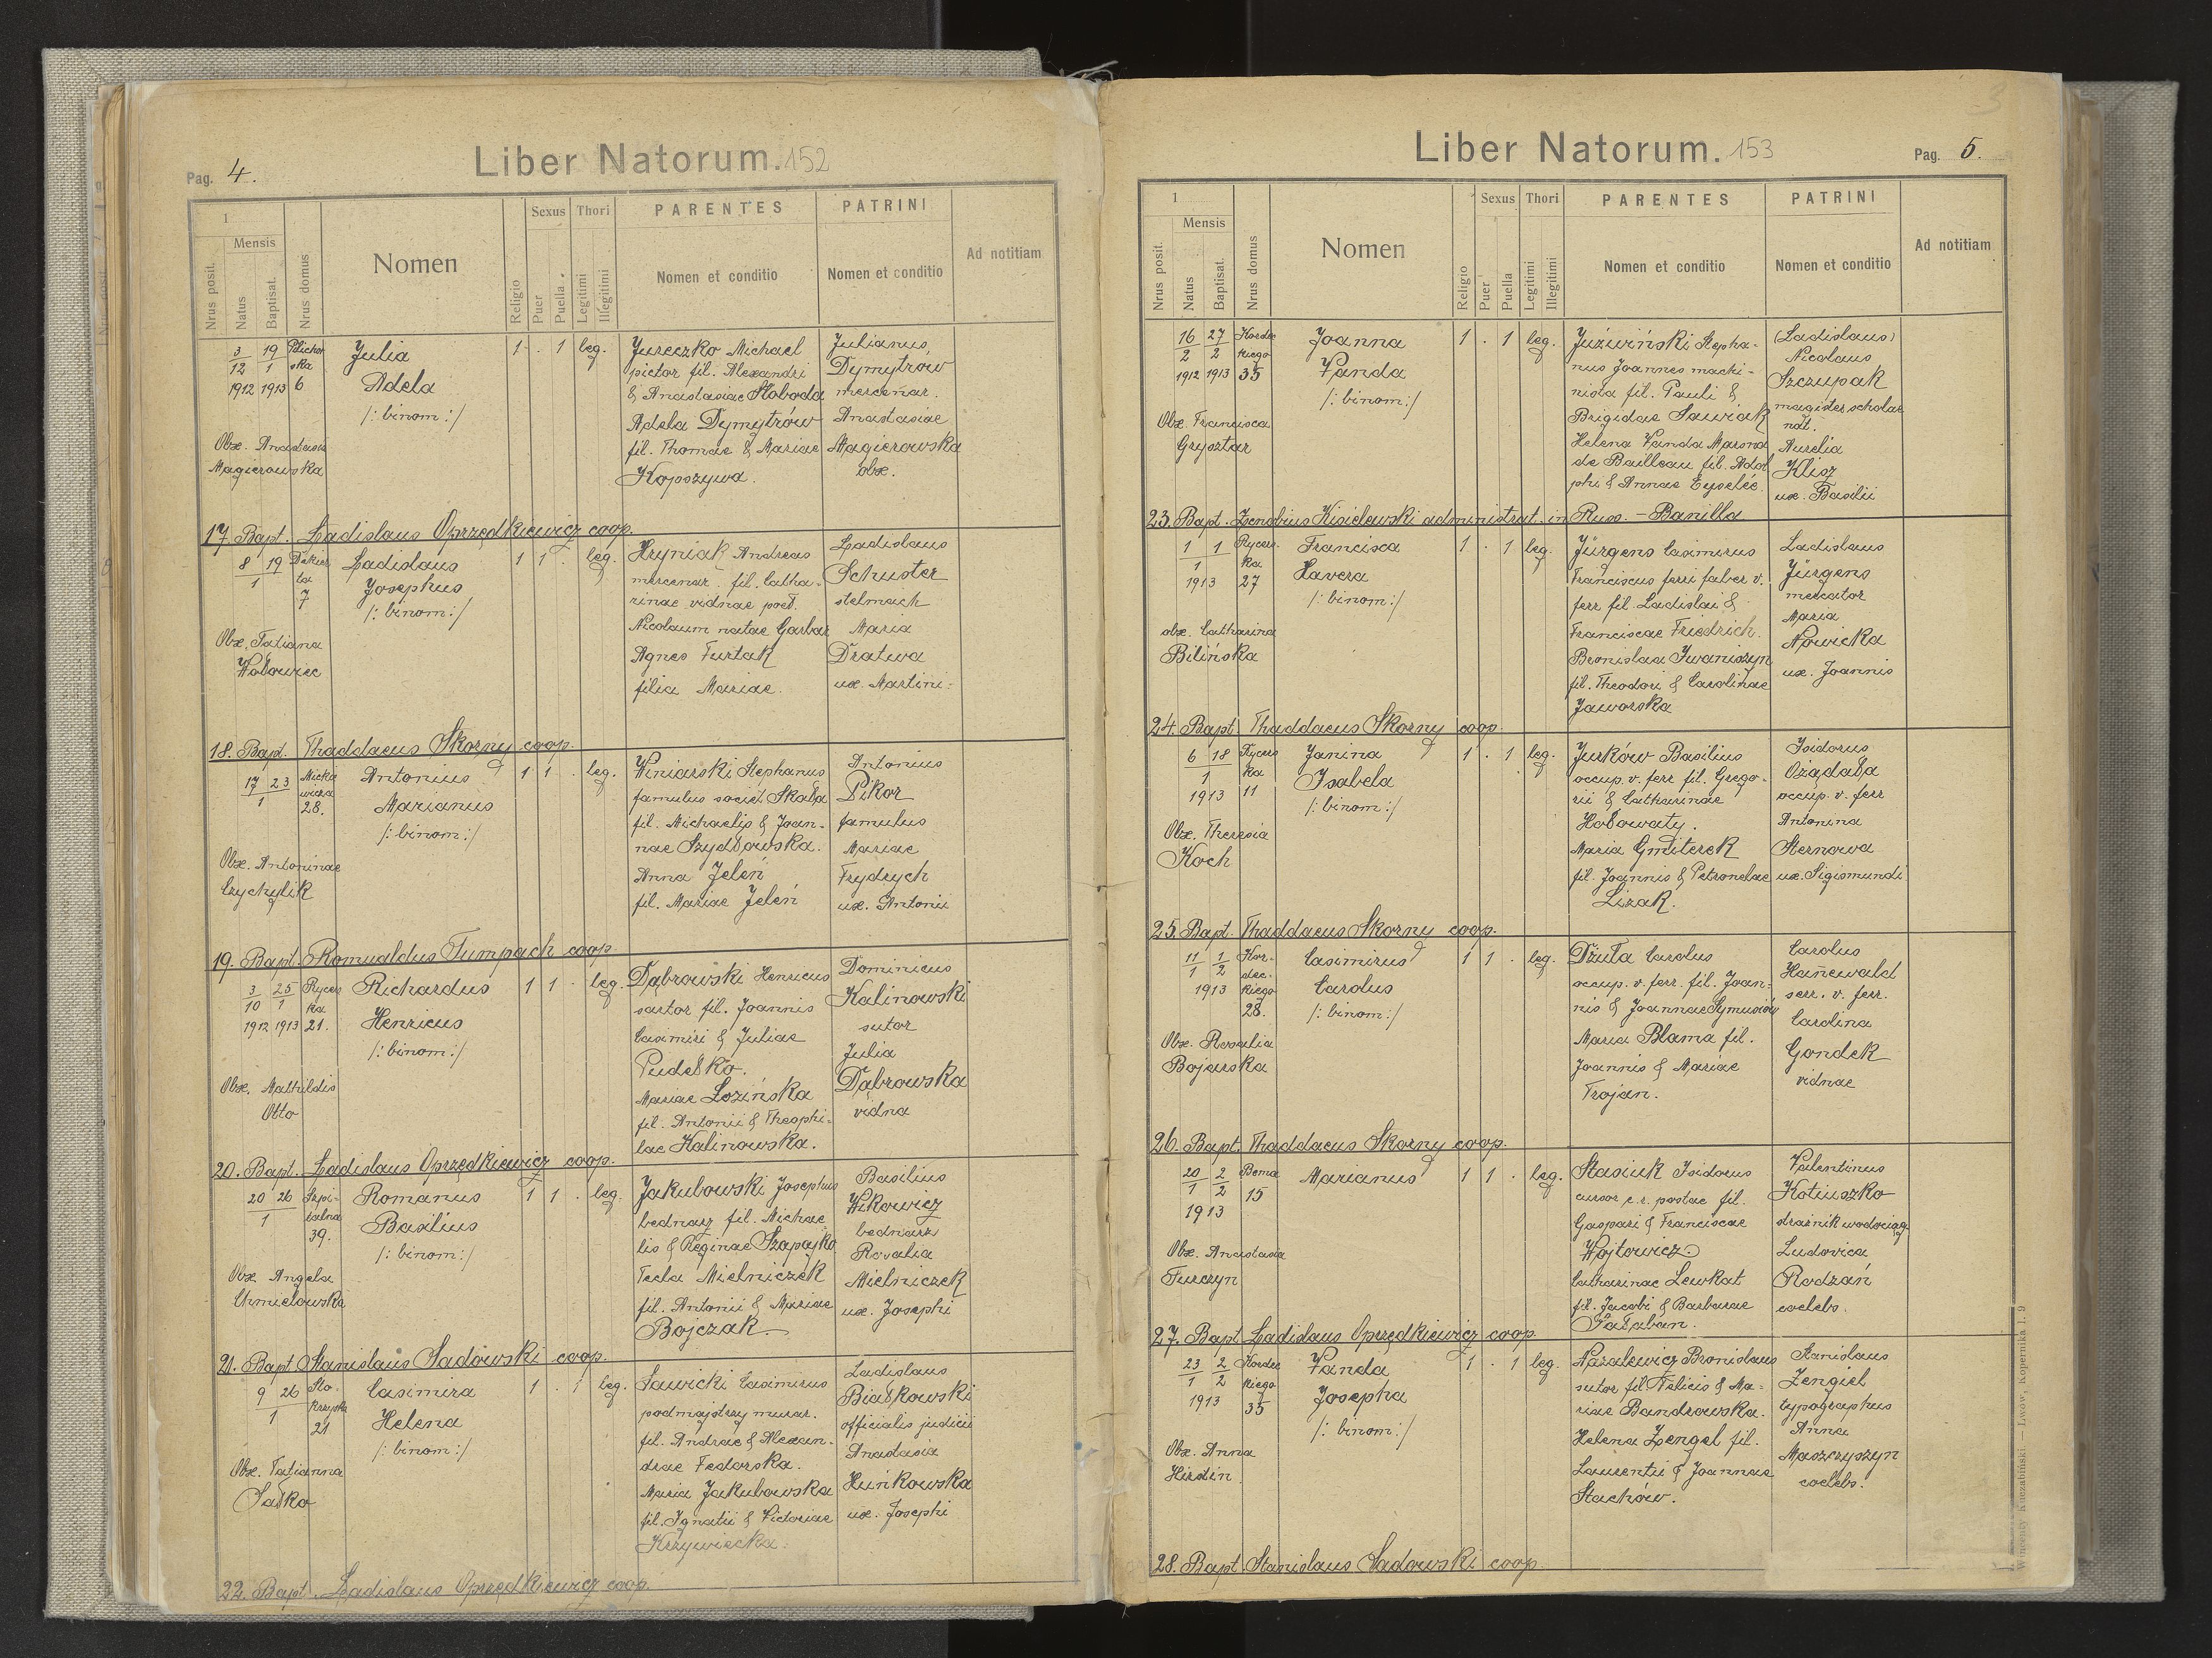 Pag. 4.
Liber Natorum. 152
1
Mensis
Nrus posit.
Natus
Baptisat.
Nrus domus
Nomen
Religio
Sexus
Puer
Puella
Thori
Legitimi
Illegitimi
PARENTES
Nomen et conditio
PATRINI
Nomen et conditio
Ad notitiam
3/12 1912
19/1 1913
6
Julia
Adela
/: binom :/
1 . 1 leg.
Obx. Anastasia
Magierowska
Jureczko Michael
pictor fil. Alexandri
& Anastasiae Słoboda
Adela Dymytrów
fil. Thomae & Mariae
Kopszywa.
Julianus
Dymytrów
mercenar.
Anastasiae
Magierowska
obx.
17. Bapt. Ladislaus Oprzędkiewicz coop.
8 19
1
7
Ladislaus
Josephus
/: binom :/
1 1 . leg.
Obx. Tatiana
Wołowiec
Hryniak Andreas
mercenar. fil. Catha-
rinae vidnae post.
Nicolaum natae Garbar
Agnes Furtak
filia Mariae.
Ladislaus
Schuster
stelmach
Maria
Dratwa
ux. Martini.
18. Bapt. Thaddaeus Skorny coop.
17 23
1
Mickie
wicza
28.
Antonius
Marianus
/: binom :/
1 1 . leg.
Obx. Antoninae
Czychylik
Winiarski Stephanus
famulus societ. Skała
fil. Michaelis & Joan-
nae Szydłowska.
Anna Jeleń
fil. Mariae Jeleń
Antonius
Pikor
famulus
Mariae
Frydrych
ux. Antonii
19. Bapt. Romualdus Tumpach coop.
3/10 1912
25/1 1913
Rycers
ka
21.
Richardus
Henricus
/: binom :/
1 1 . leg.
Obx. Mathildis
Otto
Dąbrowski Henricus
sartor fil. Joannis
Casimiri & Juliae
Pudełko.
Mariae Łozińska
fil. Antonii & Theophi-
lae Kalinowska.
Dominicus
Kalinowski
sutor
Julia
Dąbrowska
vidna
20. Bapt. Ladislaus Oprzędkiewicz coop.
20 26
1
Szpi-
talna
39.
Romanus
Basilius
/: binom :/
1 1 . leg.
Obx. Angela
Chmielowska
Jakubowski Josephus
bednarz fil. Michae
lis & Reginae Szapajko
Tecla Mielniczek
fil. Antonii & Mariae
Bojczak.
Basilius
Wikowicz
bednarz
Rosalia
Mielniczek
ux. Josephi
21. Bapt. Stanislaus Sadowski coop.
9 26
1
21
Casimira
Helena
/: binom :/
1 . 1 leg.
Obx. Tatianna
Sałko
Sawicki Casimirus
podmajstrzy murar.
fil. Andreae & Alexan-
drae Fedorska.
Maria Jakubowska
fil. Ignatii & Victoriae
Krzywiecka.
Ladislaus
Białkowski
officialis judicii
Anastasia
Huńkowska
ux. Josephi
22. Bapt. Ladislaus Oprzędkiewicz coop.
3
Liber Natorum. 153
Pag. 5.
1
Mensis
Nrus posit.
Natus
Baptisat.
Nrus domus
Nomen
Religio
Sexus
Puer
Puella
Thori
Legitimi
Illegitimi
PARENTES
Nomen et conditio
PATRINI
Nomen et conditio
Ad notitiam
16/2 1912
27/2 1913
Kordec
kiego
35
Joanna
Vanda
/: binom :/
1 . 1 leg.
Obx. Francisca
Grysztar
Juźwiński Stepha-
nus Joannes machi-
nista fil. Pauli &
Brigidae Sawiak
Helena Vanda Marsna
de Bailleau fil. Adol
phi & Annae Eyselee
(Ladislaus)
Nicolaus
Szczupak
magister scholar
nat.
Aurelia
Klisz
ux. Basilii
23. Bapt. Zenobius Kisielewski administrat. in Russ. - Banilla
1 1
1
1913
Rycers
ka
27
Francisca
Xavera
/: binom :/
1 . 1 leg.
obx. Catharina
Bilińska
Jürgens Casimirus
Franciscus ferri faber v.
ferr fil. Ladislai &
Franciscae Friedrich.
Bronislaa Iwaniszyn
fil. Theodori & Carolinae
Jaworska
Ladislaus
Jürgens
mercator
Maria
Nowicka
ux. Joannis
24. Bapt. Thaddaeus Skorny coop.
6 18
1
1913
Rycers
ka
11
Janina
Isabela
/: binom :/
1 . 1 leg.
Obx. Theresia
Koch
Jurków Basilius
occup. v. ferr fil. Grego-
rii & Catharinae
Hołowaty.
Maria Gmiterek
fil. Joannis & Petronelae
Lizak.
Isidorus
Ożądała
occup. v. ferr
Antonina
Sternowa
ux. Sigismundi
25. Bapt. Thaddaeus Skorny coop.
11/1 1/2
1913
Kor-
dec-
kiego
28.
Casimirus
Carolus
/: binom :/
1 1 . leg.
Obx. Rosalia
Bojarska
Dżuła Carolus
occup. v. ferr. fil. Joan-
nis & Joannae Symusiów
Maria Blama fil.
Joannis & Mariae
Trojan.
Carolus
Hanewald
serr. v. ferr.
Carolina
Gondek
vidnae
26. Bapt. Thaddaeus Skorny coop.
20/1 2/2
1913
Bema
15
Marianus
1 1 . leg.
Obx. Anastasia
Turczyn
Stasiuk Isidorus
cursor c. r. postae fil.
Gaspari & Franciscae
Wojtowicz.
Catharinae Lewkat
fil. Jacobi & Barbarae
Sałaban.
Valentinus
Kotiuszko
strażnik wodociąg.
Ludovica
Rodzań
coelebs.
27. Bapt. Ladislaus Oprzędkiewicz coop.
23/1 2/2
1913
Kordec
kiego
35
Vanda
Josepha
/: binom :/
1 . 1 leg.
Obx. Anna
Hirdin
Nazalewicz Bronislaus
sutor fil. Felicis & Ma-
riae Bandrowska.
Helena Zengel fil.
Laurentii & Joannae
Stachów.
Stanislaus
Zengiel
typographus
Anna
Maszczyszyn
coelebs.
28. Bapt. Stanislaus Sadowski coop.
Wincenty Kuczabiński. — Lwów, Kopernika l. 9